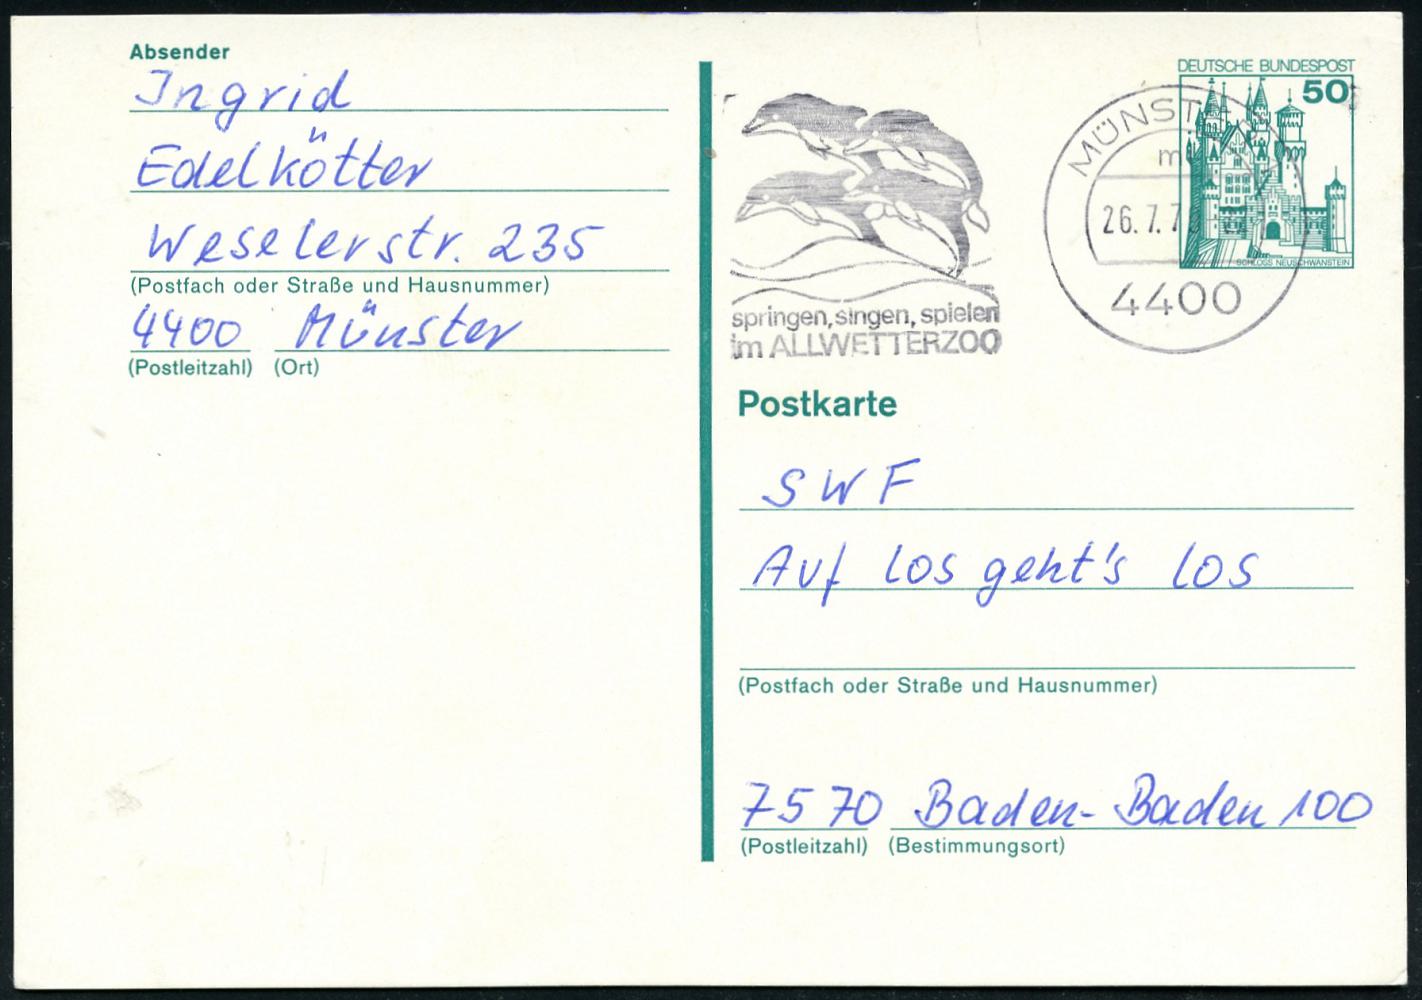 Absender
Ingrid
Edelkötter
Weselerstr. 235
(Postfach oder Straße und Hausnummer)
4400 Münster
(Postleitzahl) (Ort)
springen, singen, spielen
im ALLWETTERZOO
MÜNST
26.7.7
4400
DEUTSCHE BUNDESPOST
50
SCHLOSS NEUSCHWANSTEIN
Postkarte
SWF
Auf los geht's los
(Postfach oder Straße und Hausnummer)
7570 Baden-Baden 100
(Postleitzahl) (Bestimmungsort)